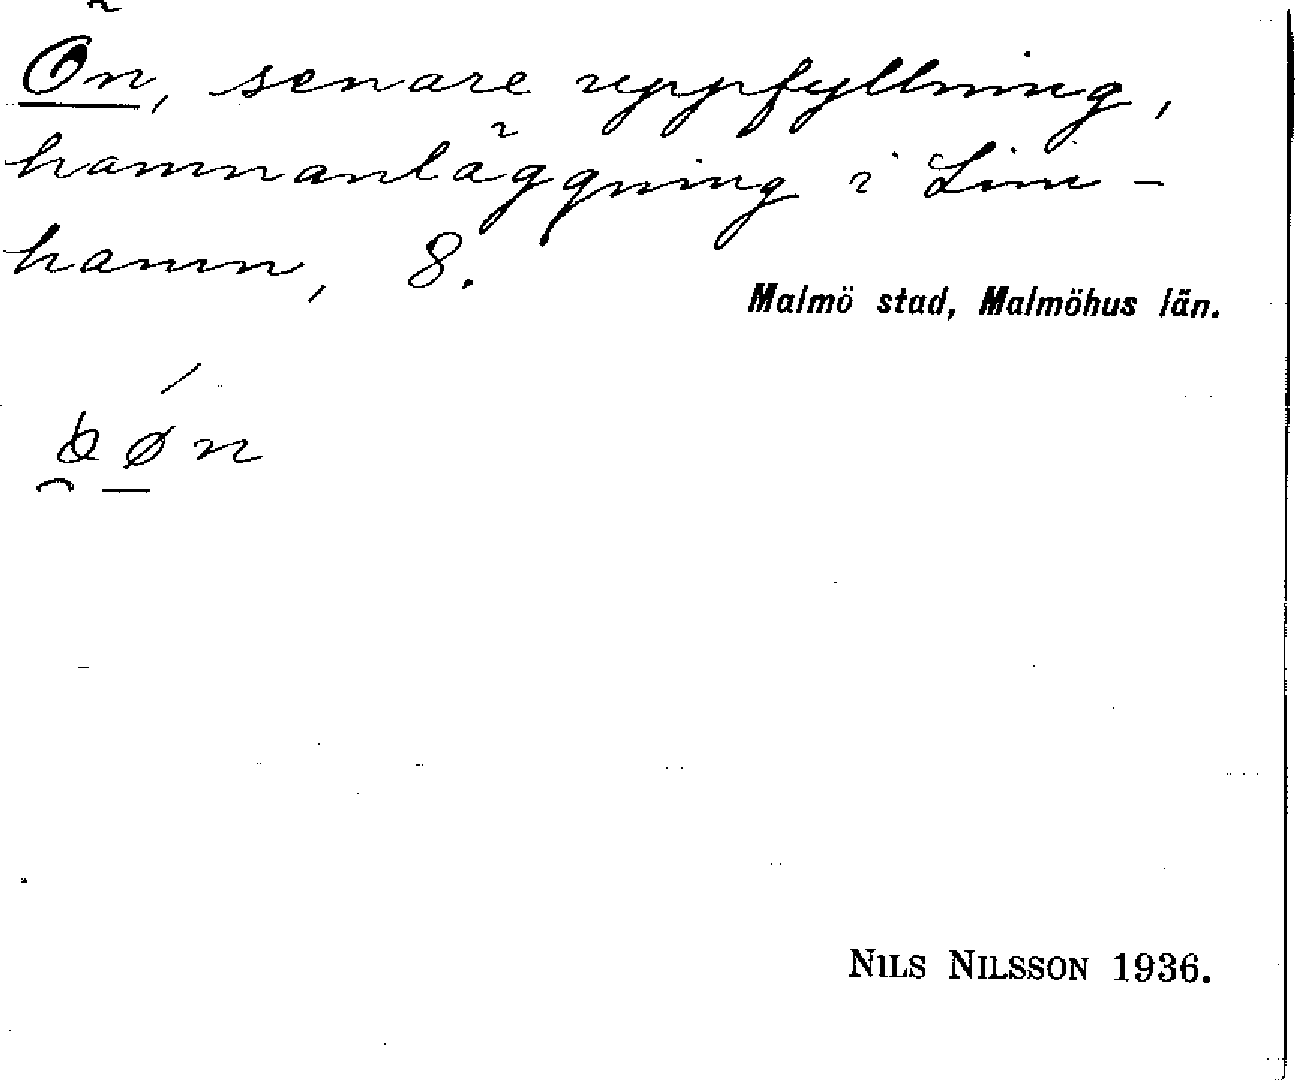 Ön, senare uppfyllning,
hamnanläggning i Lim-
hamn, 8.
Malmö stad, Malmöhus län.
NILS NILSSON 1936.